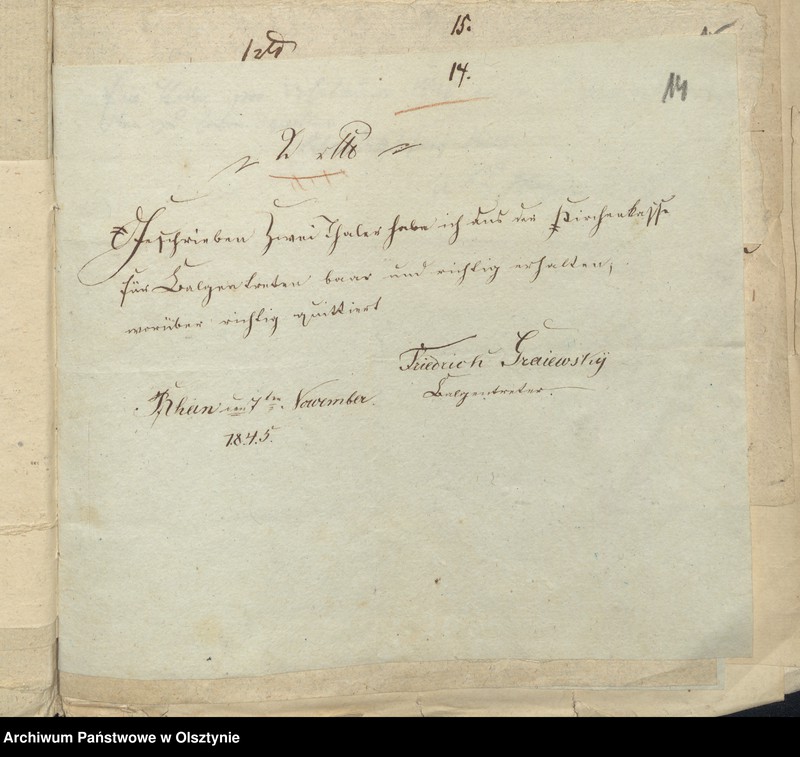 15.
14.
14
2 rtlr
Geschrieben Zwei Thaler habe ich aus der Kirchenkasse
für Balgentreten baar und richtig erhalten,
worüber richtig quittiert
Friedrich Graiewsky
Balgentreter.
Rhein den 7ten November
1845.
Archiwum Państwowe w Olsztynie